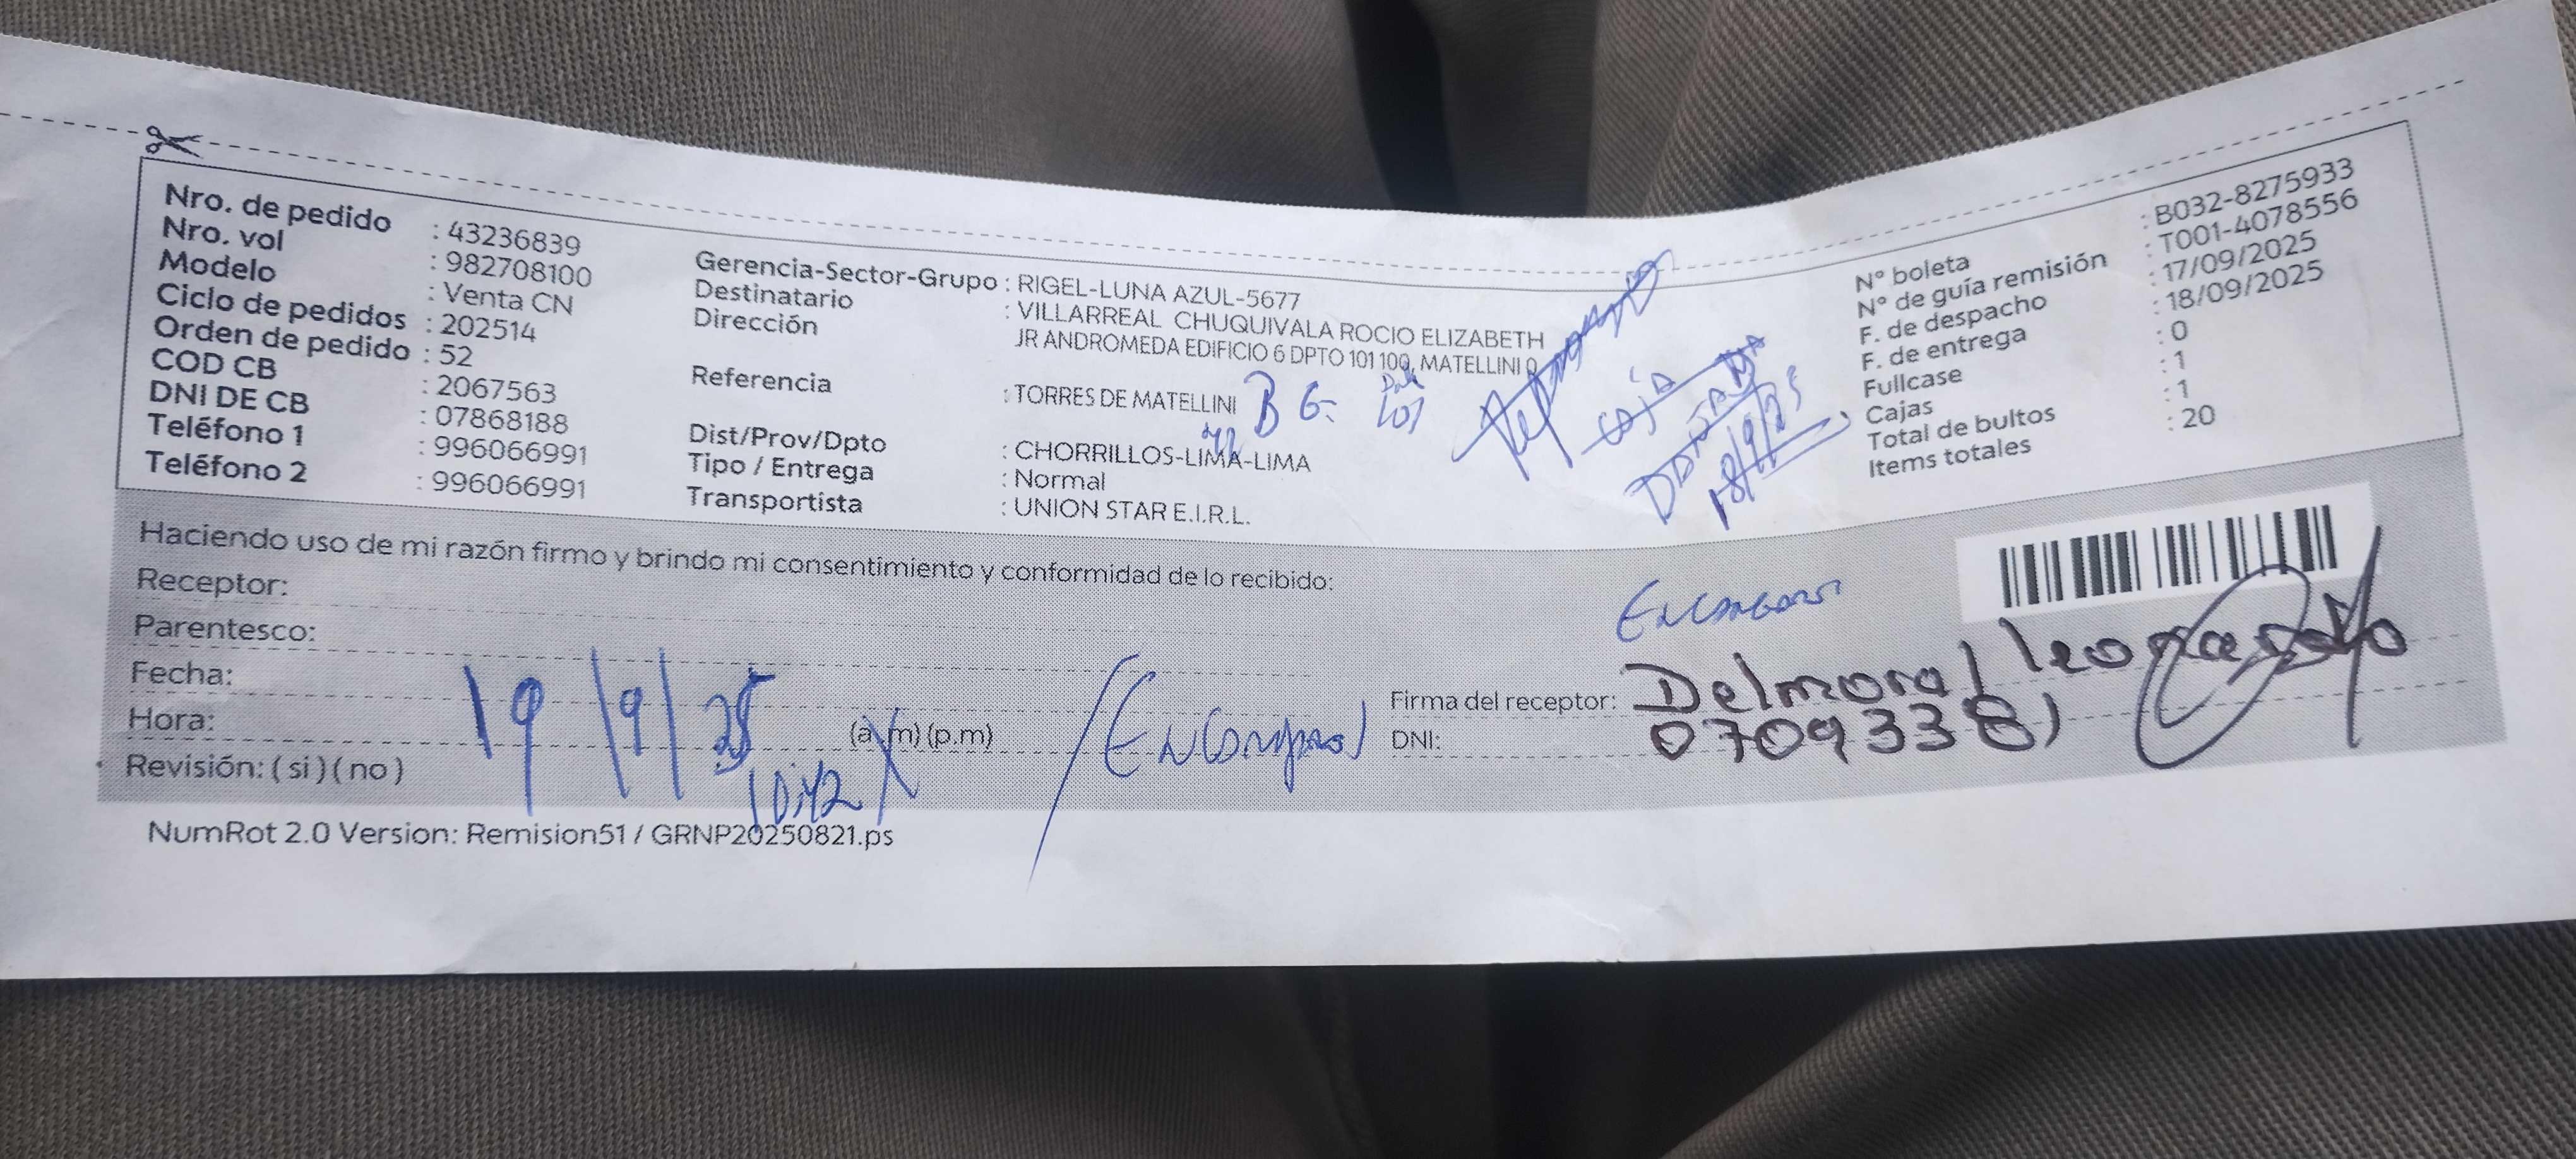 Nro. de pedido : 43236839
Nro. vol : 982708100
Modelo : Venta CN
Ciclo de pedidos : 202514
Orden de pedido : 52
COD CB : 2067563
DNI DE CB : 07868188
Teléfono 1 : 996066991
Teléfono 2 : 996066991
Gerencia-Sector-Grupo : RIGEL-LUNA AZUL-5677
Destinatario : VILLARREAL CHUQUIVALA ROCIO ELIZABETH
Dirección : JR ANDROMEDA EDIFICIO 6 DPTO 101 100, MATELLINI 0
Referencia : TORRES DE MATELLINI B 6
101
Dist/Prov/Dpto : CHORRILLOS-LIMA-LIMA
Tipo / Entrega : Normal
Transportista : UNION STAR E.I.R.L.
caja
18/9/25
N° boleta : B032-8275933
N° de guía remisión : T001-4078556
F. de despacho : 17/09/2025
F. de entrega : 18/09/2025
Fullcase : 0
Cajas : 1
Total de bultos : 1
Items totales : 20
Haciendo uso de mi razón firmo y brindo mi consentimiento y conformidad de lo recibido:
Receptor:
Parentesco:
Fecha: 19/9/25
Hora: 10:42 (a.m) (p.m)
Revisión: ( si ) ( no )
Firma del receptor: Delmoral leonardo
DNI: 07093381
NumRot 2.0 Version: Remision51 / GRNP20250821.ps